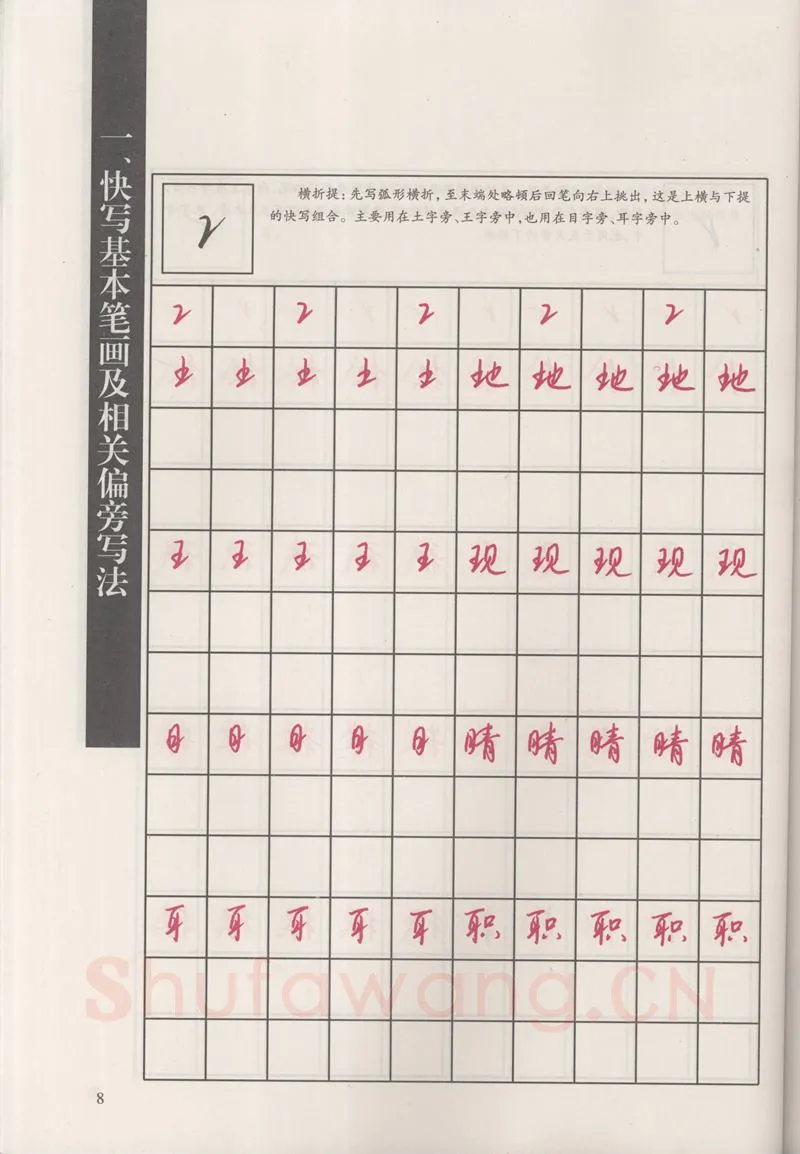 一、快写基本笔画及相关偏旁写法
横折提：先写弧形横折，至末端处略顿后回笔向右上挑出，这是上横与下提
的快写组合。主要用在土字旁、王字旁中，也用在目字旁、耳字旁中。
土 土 土 土 土 地 地 地 地 地
王 王 王 王 王 现 现 现 现 现
目 目 目 目 目 睛 睛 睛 睛 睛
耳 耳 耳 耳 耳 职 职 职 职 职
Shufawang.CN
8